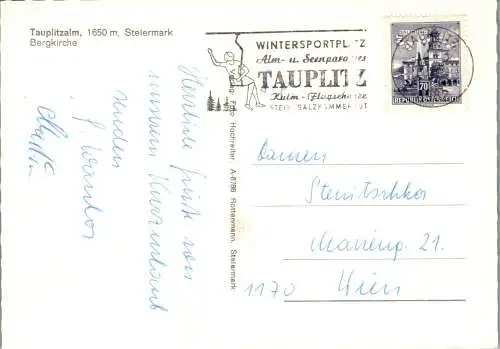 Tauplitzalm, 1650 m, Steiermark
Bergkirche
WINTERSPORTPLATZ
Alm- u. Seenparadies
TAUPLITZ
Kulm - Flugschanze
STEIR. SALZKAMMERGUT
70
REPUBLIK ÖSTERREICH
Verlag: Foto Hochreiter A-8786 Rottenmann, Steiermark
Herzliche Grüße von
unserem Kurzurlaub
senden
Damen
Stenitschka
Marieng. 21.
1170 Wien